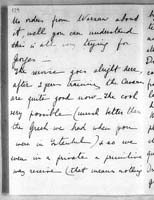 no orders from Warsaw about
it, well you can understand
this is all very trying for
George —
The service goes alright here
after 2 from training, the Caserne
are quite good now. The cook
very possible (much better than
the Greek we had when you
were in Istanbul) & as we
were in a private a primitive
way service (that means nothing